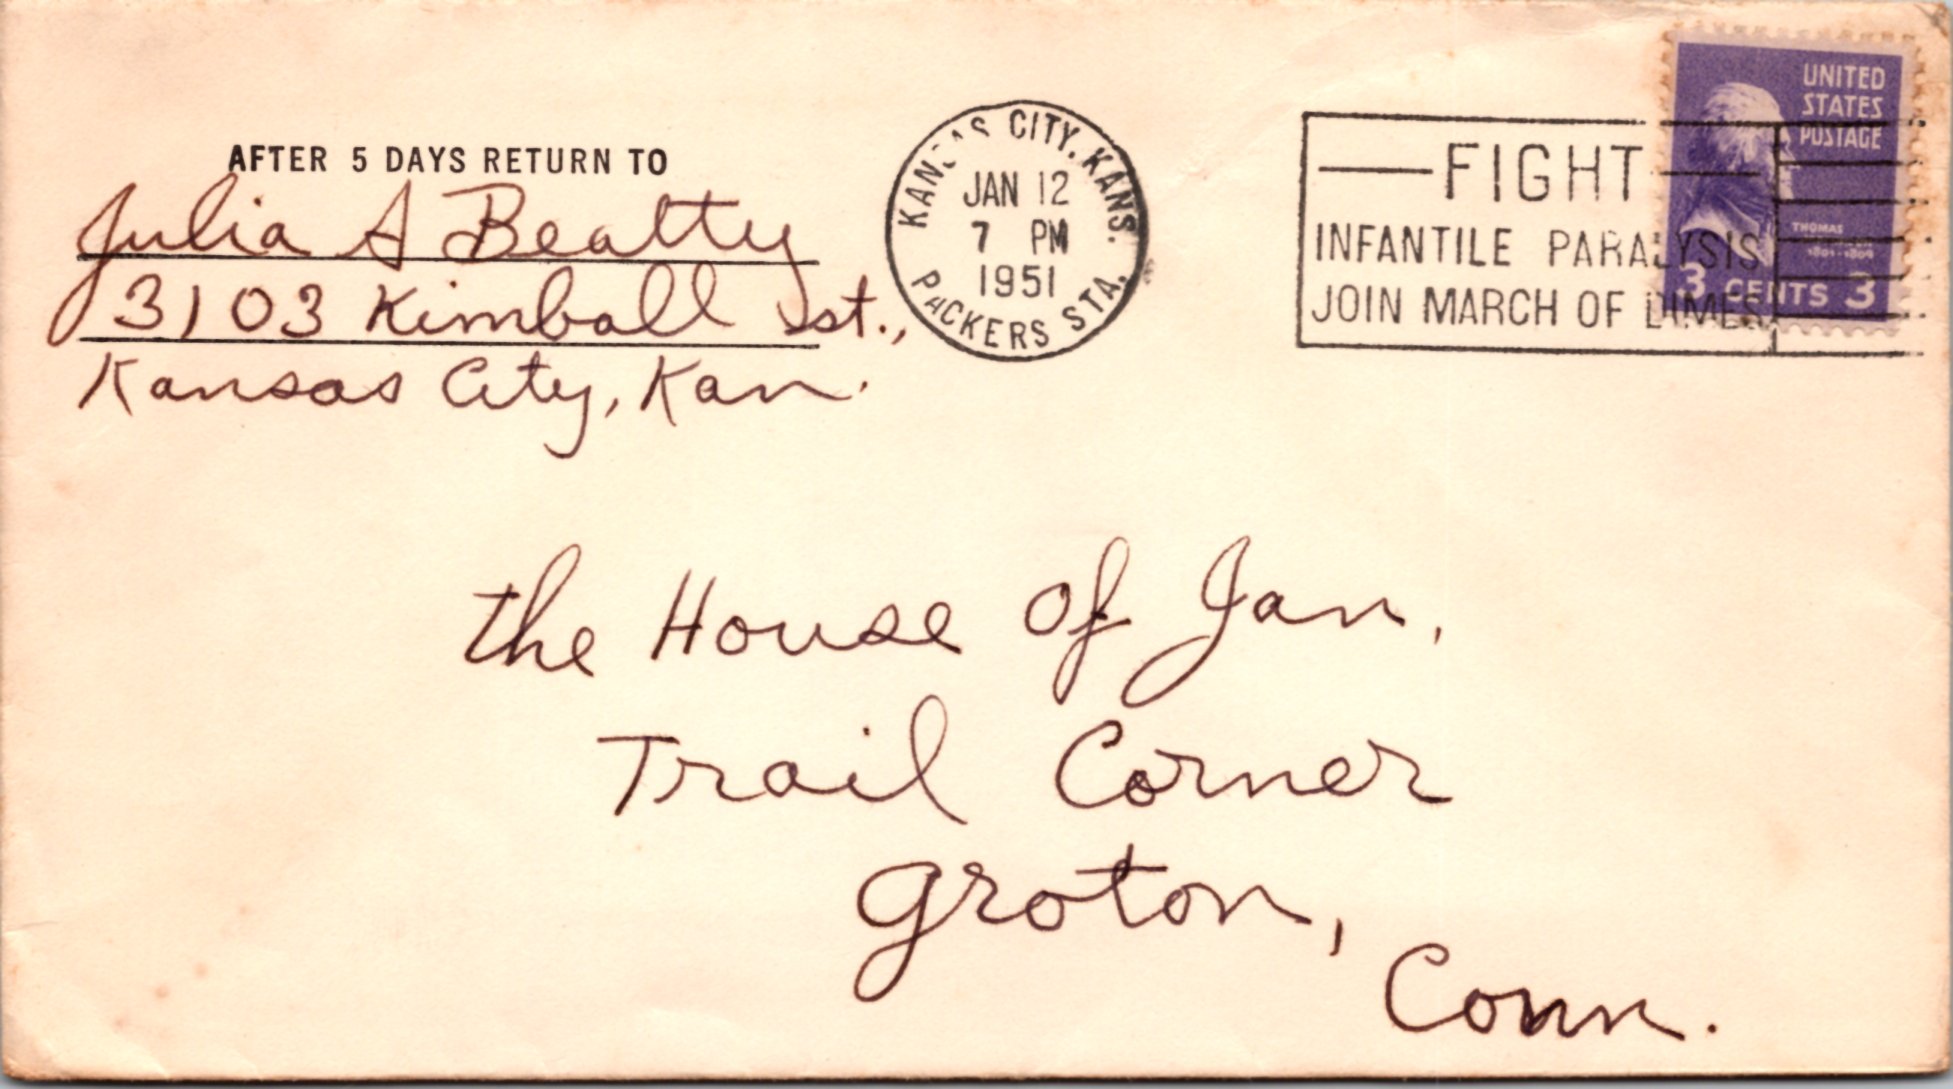 AFTER 5 DAYS RETURN TO
Julia A Beatty
3103 Kimball st.,
Kansas City, Kan.
KANSAS CITY, KANS.
JAN 12
7 PM
1951
PACKERS STA.
FIGHT
INFANTILE PARALYSIS
JOIN MARCH OF DIMES
UNITED
STATES
POSTAGE
THOMAS
1801-1809
3 CENTS 3
the House of Jan,
Trail Corner
Groton,
Conn.